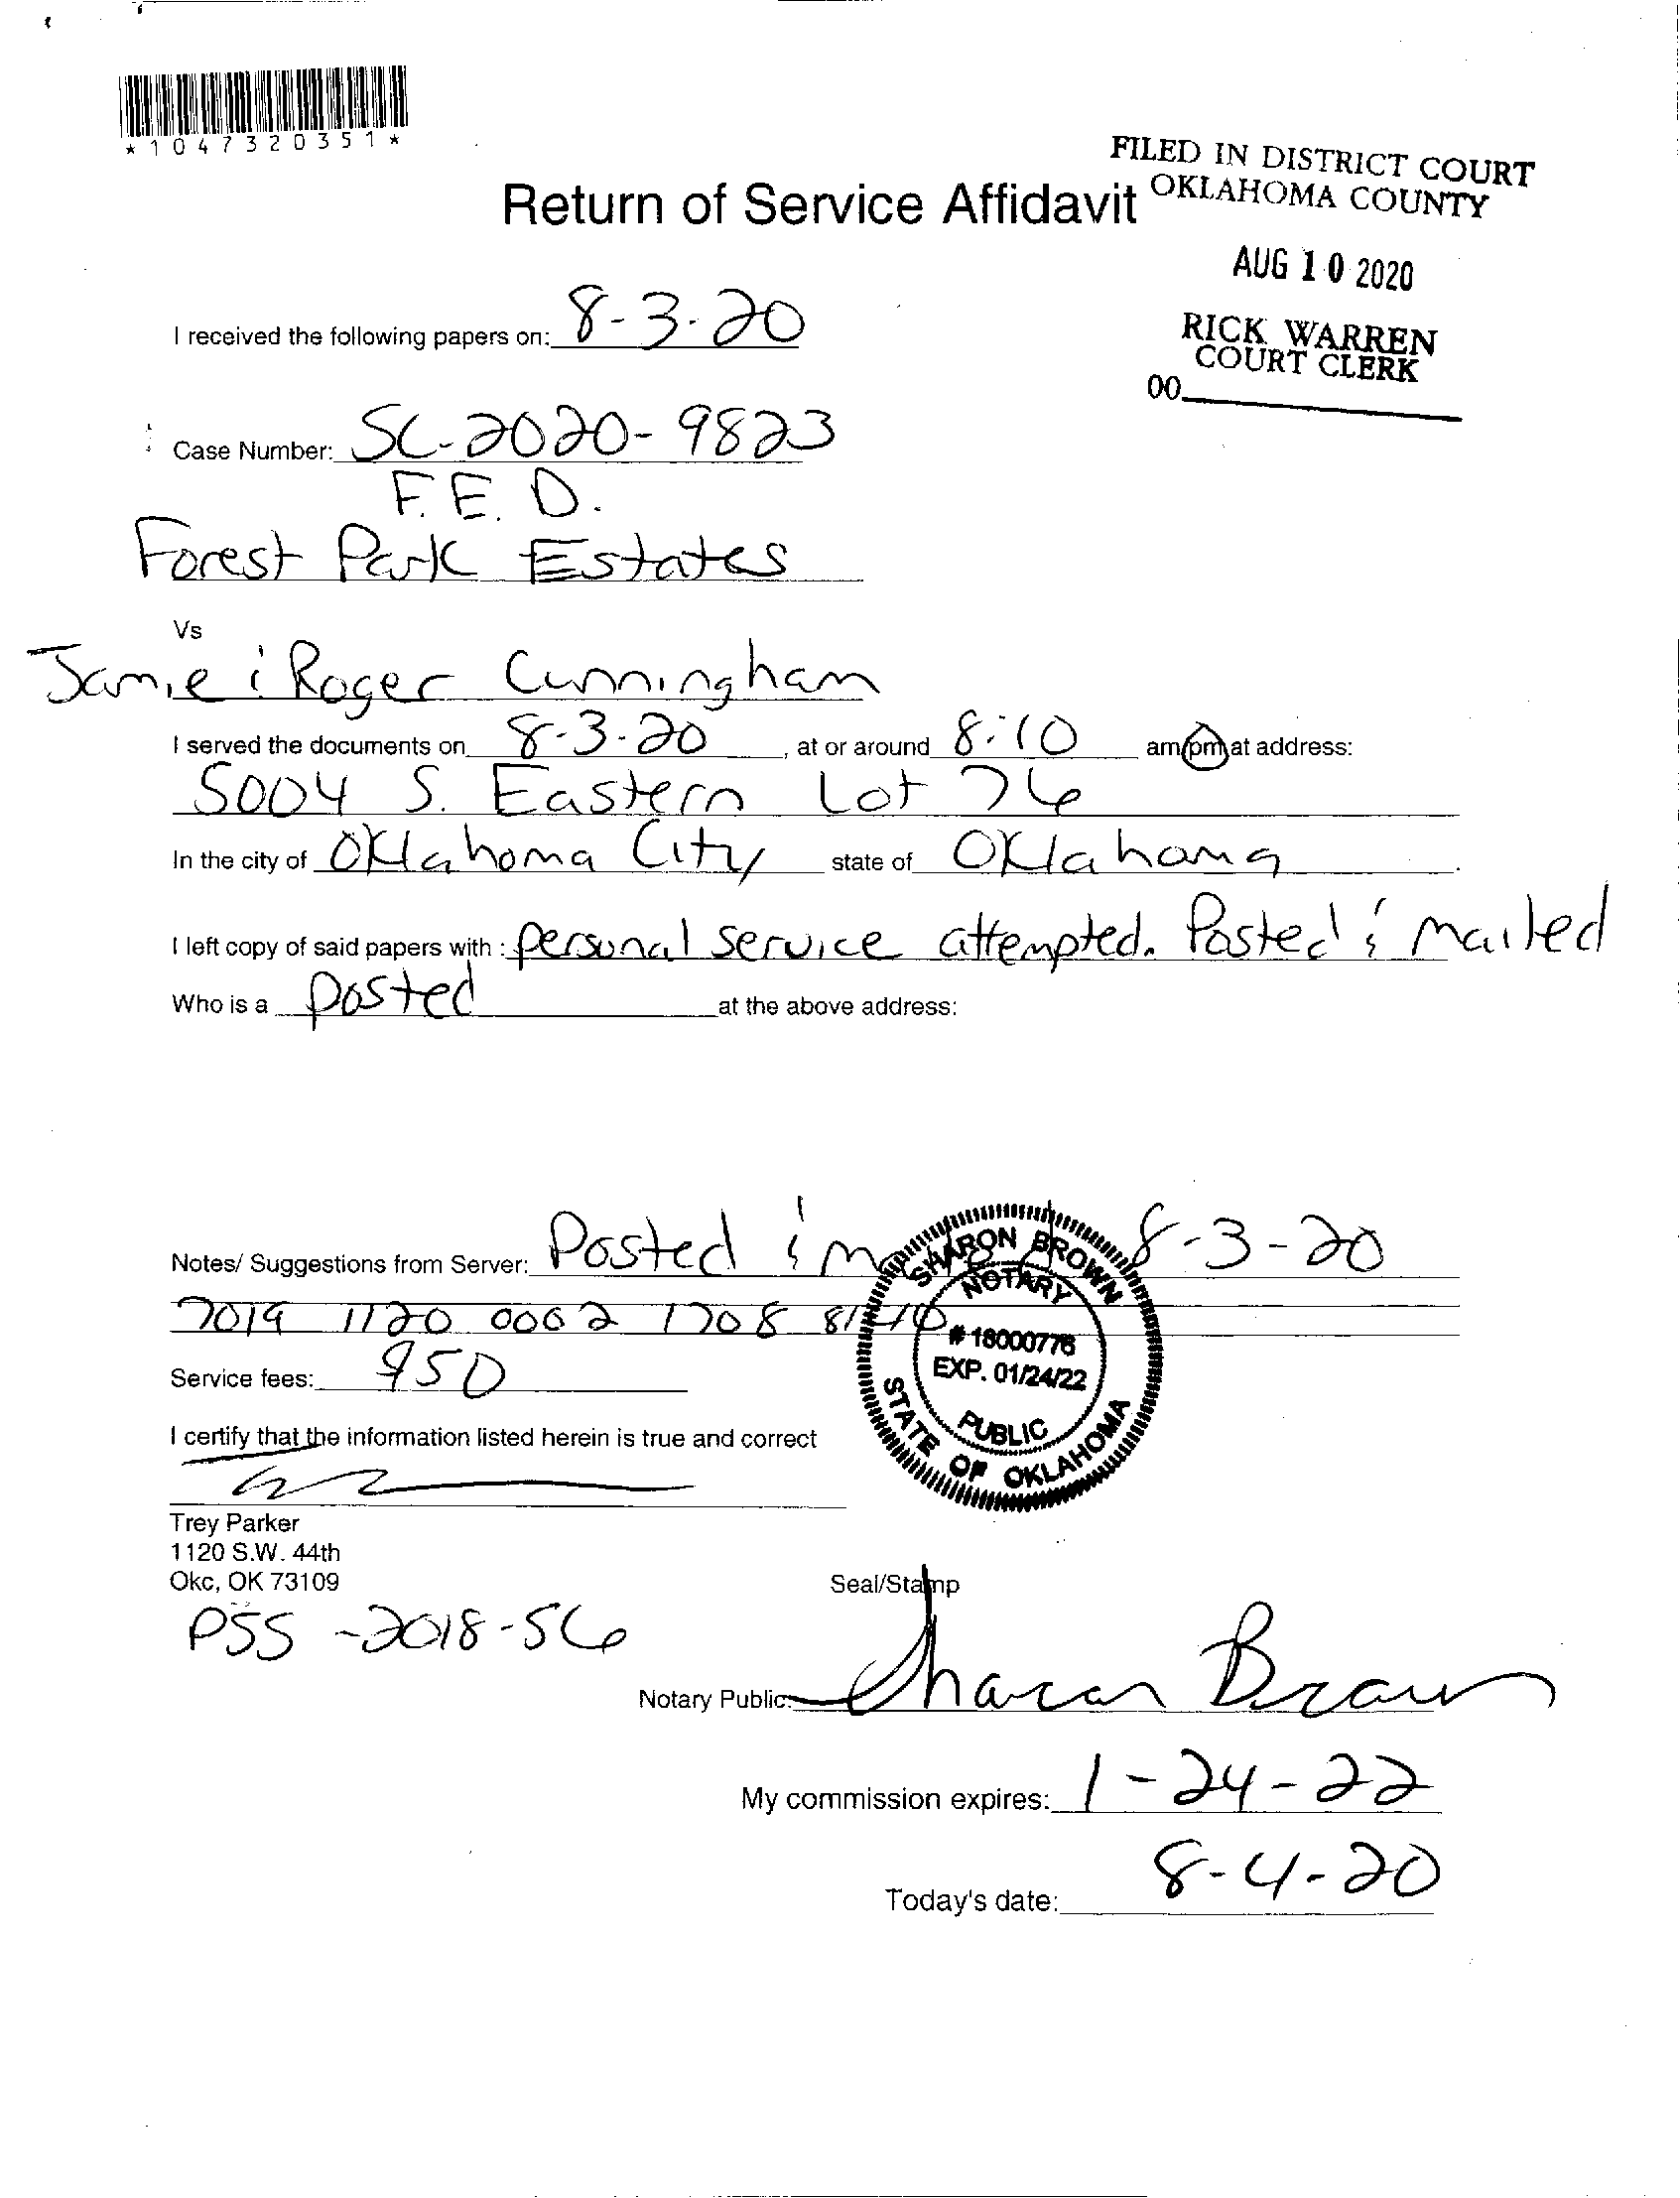 *1047320351*
FILED IN DISTRICT COURT
OKLAHOMA COUNTY
Return of Service Affidavit
AUG 10 2020
RICK WARREN
COURT CLERK
00
I received the following papers on: 8-3-20
Case Number: SC-2020-9823
F.E.D.
Forest Park Estates
Vs
Jamie & Roger Cunningham
I served the documents on 8-3-20, at or around 8:10 am/pm at address:
5004 S. Eastern Lot 76
In the city of Oklahoma City state of Oklahoma.
I left copy of said papers with: personal service attempted. Posted & mailed
Who is a posted at the above address:
Notes/ Suggestions from Server: Posted & 8-3-20
7019 1120 0002 1708
Service fees:
I certify that the information listed herein is true and correct
Trey Parker
1120 S.W. 44th
Okc, OK 73109
PSS-2018-56
SHARON BROWN
NOTARY
# 18000776
EXP. 01/24/22
PUBLIC
STATE OF OKLAHOMA
Seal/Stamp
Notary Public: Sharon Brown
My commission expires: 1-24-22
Today's date: 8-4-20